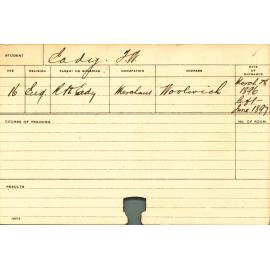 STUDENT Eady. F.W.
AGE RELIGION PARENT OR GUARDIAN OCCUPATION ADDRESS DATE OF ENTRANCE
16 Eng Eady Merchant Woolwich March
1896
left
June 1897
COURSE OF TRAINING NO. OF ROOM
RESULTS